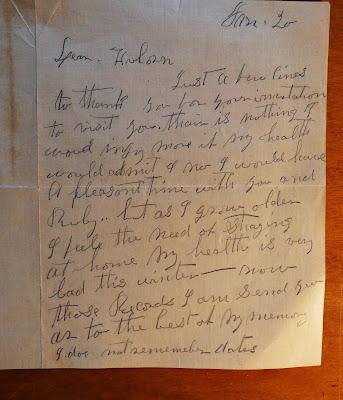 Jan. 20
Dear
Just a few lines
to thank you for your invitation
to visit you. thair is nothing I
woud injoy more if my health
would admit I no I would have
A pleasant time with you and
Ruby.. but as I grow older
I fele the need of Staying
at home my health is very
bad this winter — now
those Records I am Send you
as to the best of my memory
I doe not rememeber dates